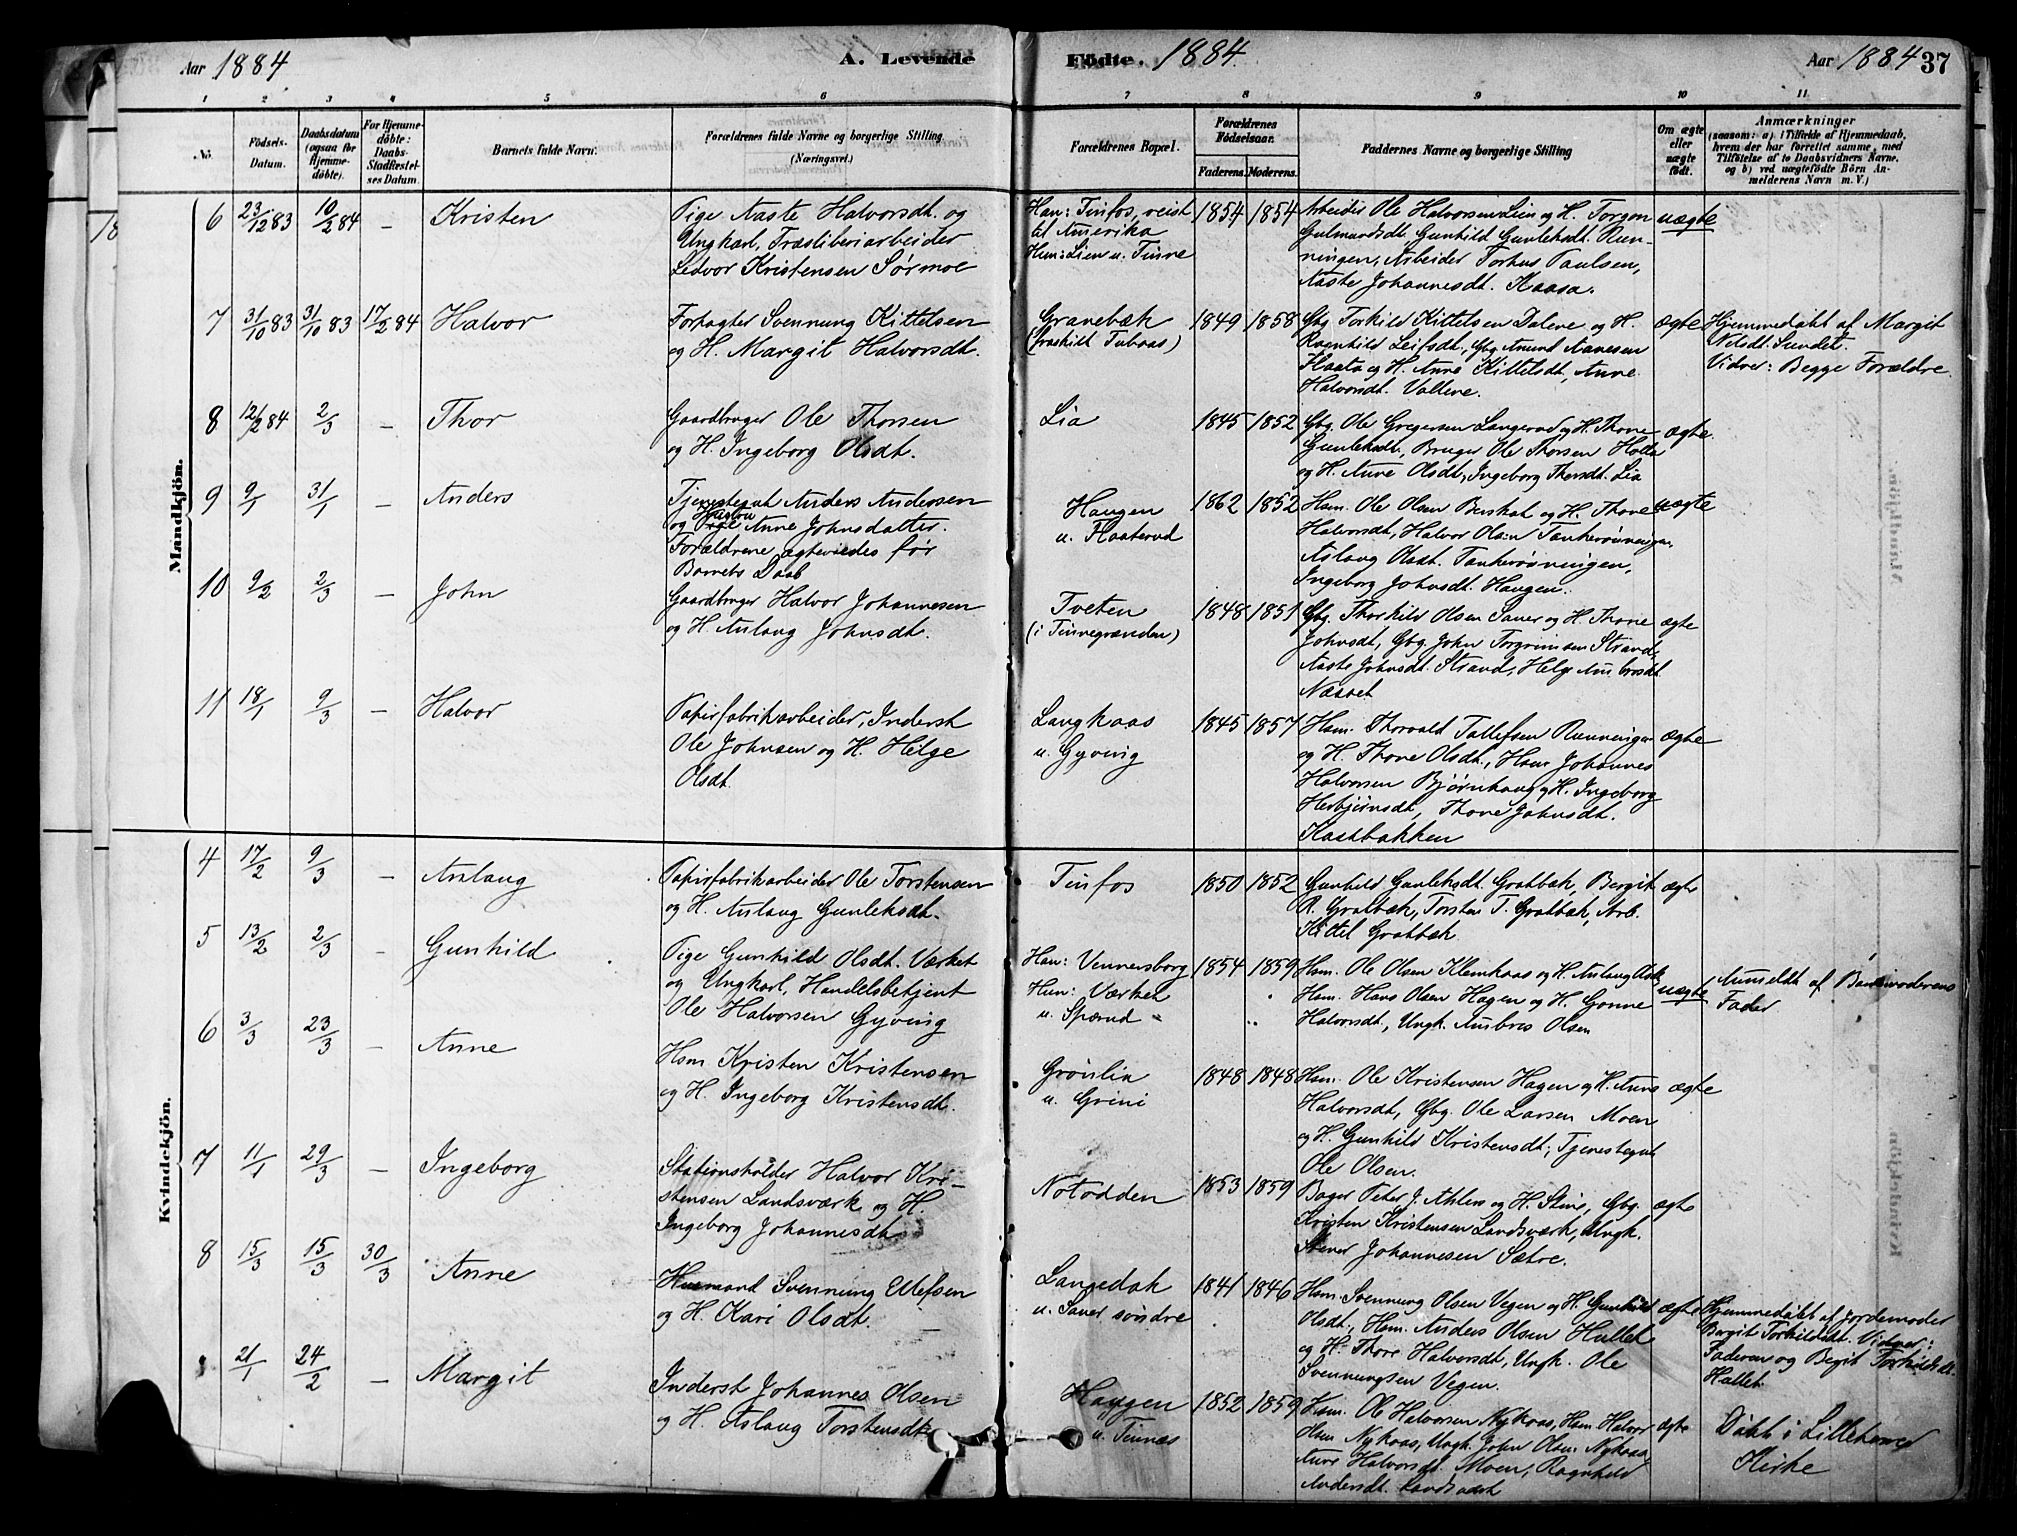 Aar 1884
A. Levende
Födte. 1884
Aar 1884
37
1 2 3 4 5 6 7 8 9 10 11
No.
Födsels-
Datum.
Daabsdatum
(ogsaa for
Hjemme-
döbte).
For Hjemme-
döbte:
Daabs-
Stadfæstel-
ses Datum.
Barnets fulde Navn.
Forældrenes fulde Navne og borgerlige Stilling.
(Næringsvei.)
Forældrenes Bopæl.
Forældrenes
Födselsaar.
Faderens. Moderens.
Faddernes Navne og borgerlige Stilling
Om ægte
eller
uægte
født.
Anmærkninger
(saasom: a) i Tilfælde af Hjemmedaab,
hvem der har forrettet samme, med
Tilföielse af to Daabsvidners Navne,
og b) ved uægtefödte Börn An-
melderens Navn m. V.)
Mandkjön.
6 23/12 83 10/2 84 – Kristen
Pige Aaste Halvorsdt. og
Ungkarl, Træsliberiarbeider
Ledvor Kristensen Sørmoe
Han: Tinfos, reist
til Amerika
Hun: Lien u. Tinne
1854 1854
Arbeider Ole Halvorsen Lien og H. Torgon
Gulmundsdt. Gunhild Gunleksdt. Run-
ningen, Arbeider Torhus Paulsen,
Aaste Johannesdt. Kaasa.
uægte
7 31/10 83 31/10 83 17/2 84 Halvor
Forpagter Svennung Kittelsen
og H. Margit Halvorsdt.
Granebæk
(fraskilt Tuboas)
1849 1858
Gbg. Torkild Kittelsen Dalene og H.
Ragnhild Leifsdt., Gbg. Amund Aanesen
Kaata og H. Anne Kittelsdt, Anne
Halvorsdt. Vallene.
ægte
Hjemmedøbt af Margit
Nilsdt. Sundet.
Vidner: Begge Forældre.
8 12/2 84 2/3 – Thor
Gaardbruger Ole Thorsen
og H. Ingeborg Olsdt.
Lia
1845 1852
Gbg. Ole Gregersen Langerud og H. Thone
Gunleksdt., Bruger Ole Thorsen Holte
og H. Anne Olsdt, Ingeborg Thorsdt. Lia
ægte.
9 9/1 31/1 – Anders
Tjenestegut Anders Andersen
Hustru
og Pige Anne Johnsdatter.
Forældrene ægteviedes før
Barnets Daab
Haugen
u. Flaaterud
1862 1852
Hsm. Ole Olsen Berskot og H. Thone
Halvorsdt, Halvor Olsen Tankerøvningen,
Aslaug Olsdt. Tankerøvningen,
Ingeborg Johnsdt. Haugen.
uægte
10 9/2 2/3 – John
Gaardbruger Halvor Johannesen
og H. Aslaug Johnsdt.
Tveten
(i Tinnegrænden)
1848 1851
Gbg. Thorkild Olsen Sauer og H. Thone
Johnsdt, Gbg. John Torgrimsen Strand,
Aaste Johnsdt. Strand, Helge Ambrosdt
Næsset
ægte
11 18/1 9/3 – Halvor
Papirfabrikarbeider, Inderst
Ole Johnsen og H. Helge
Olsdt.
Langkaas
u. Gyving
1845 1857
Hsm. Thorvald Tallefsen Runningen
og H. Thone Olsdt., Hsm Johannes
Halvorsen Bjørnhaug og H. Ingeborg
Herbjørnsdt, Thone Johnsdt.
Kastbakken
ægte
Kvindekjön.
4 17/2 9/3 – Aslaug
Papirfabrikarbeider Ole Torstensen
og H. Aslaug Gunleksdt.
Tinfos
1850 1852
Gunhild Gunleksdt. Gratbæk, Bergit
R. Gratbæk, Torsten T. Gratbæk, Arb.
Kittel Gratbæk
ægte
5 13/2 2/3 – Gunhild
Pige Gunhild Olsdt. Værket
og Ungkarl, Handelsbetjent
Ole Halvorsen Gyving
Han: Vennersborg
Hun: Værket
u. Spærud
1854 1859
Hsm. Ole Olsen Klemkaas og H. Aslaug Olsdt
Hsm. Hans Olsen Hagen og H. Gonne
Halvorsdt, Ungk. Ambros Olsen
uægte
Anmeldt af Barnemoderens
Fader
6 3/3 23/3 – Anne
Hsm Kristen Kristensen
og H. Ingeborg Kristensdt.
Grønlia
u. Grini
1848 1848
Hsm. Ole Kristensen Hagen og H. Anne
Halvorsdt, Gbg. Ole Larsen Moen
og H. Gunhild Kristensdt; Tjenestegut
Ole Olsen.
ægte
7 11/1 29/3 – Ingeborg
Stationsholder Halvor Kri-
stensen Landsværk og H.
Ingeborg Johannesdt.
Notodden
1853 1859
Bager Peter J. Ahlers og H. Stine, Gbg.
Kristen Kristensen Landsværk, Ungk.
Stener Johannesen Sætre.
ægte
8 15/3 15/3 30/3 Anne
Husmand Svennung Ulefsen
og H. Kari Olsdt.
Langedak
u. Sauer søndre
1841 1846
Hsm. Svennung Olsen Vegen og H. Gunhild
Olsdt., Hsm. Anders Olsen Hullet
og H. Thore Halvorsdt, Ungk. Ole
Svennungsen Vegen.
ægte
Hjemmedøbt af Jordemoder
Bergit Torkildsdt. Vidner:
Faderen og Begit Torkildsdt.
Hullet
21/1 24/2 – Margit
Inderst Johannes Olsen
og H. Aslaug Torstensdt.
Haugen
u. Tinnæs
1852 1859
Hsm. Ole Halvorsen Nykaas, Hsm. Halvor
Olsen Nykaas, Ungk. John Olsen Nykaas,
Anne Halvorsdt. Moen, Ragnhild
Andersdt. Landsværk
ægte
Døbt i Lilleherred
Kirke